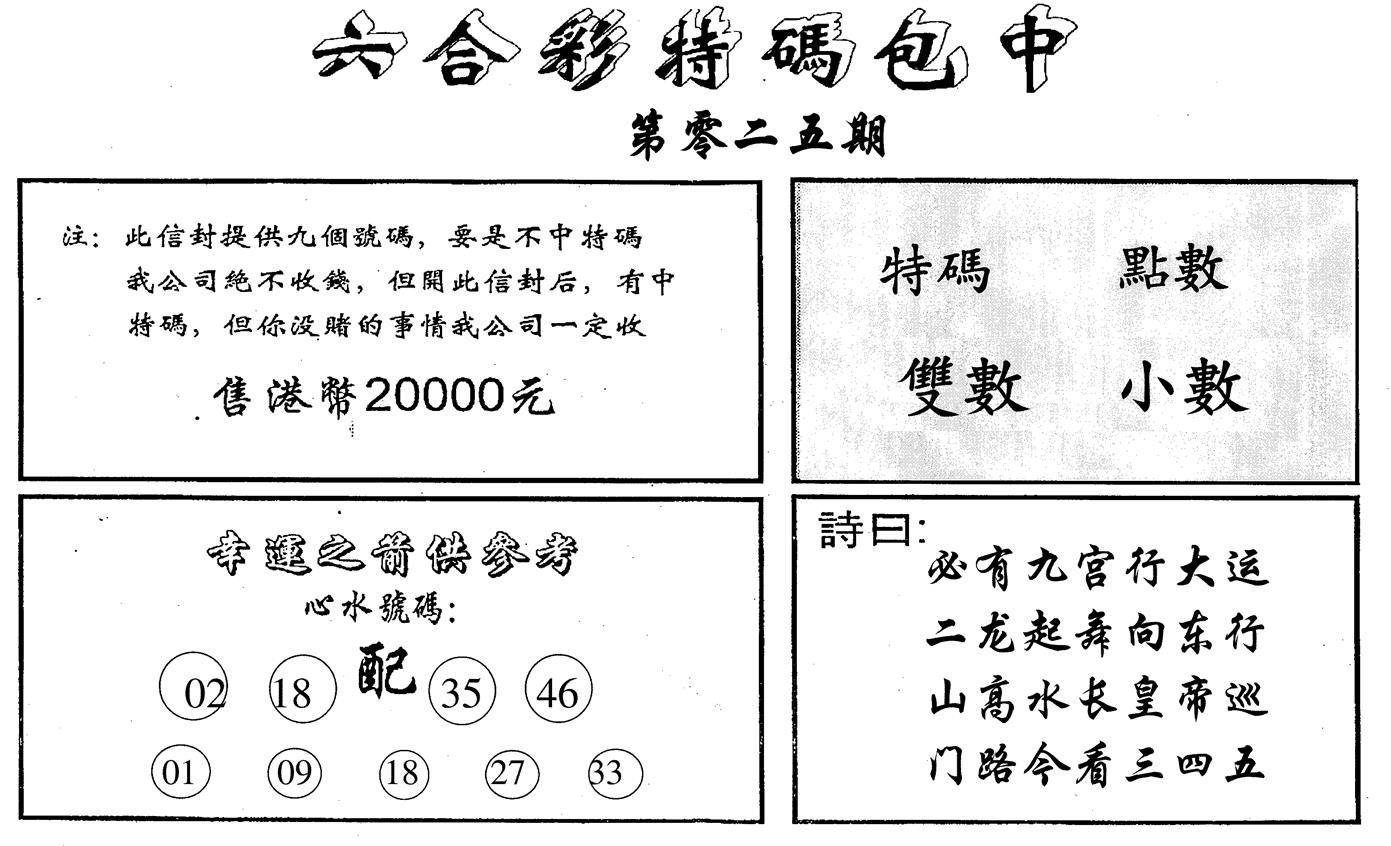 六合彩特碼包中
第零二五期
注：此信封提供九個號碼，要是不中特碼
我公司絕不收錢，但開此信封后，有中
特碼，但你没賭的事情我公司一定收
售港幣20000元
特碼 點數
雙數 小數
幸運之箭供參考
心水號碼：
02 18 配 35 46
01 09 18 27 33
詩曰：
必有九宫行大运
二龙起舞向东行
山高水长皇帝巡
门路今看三四五